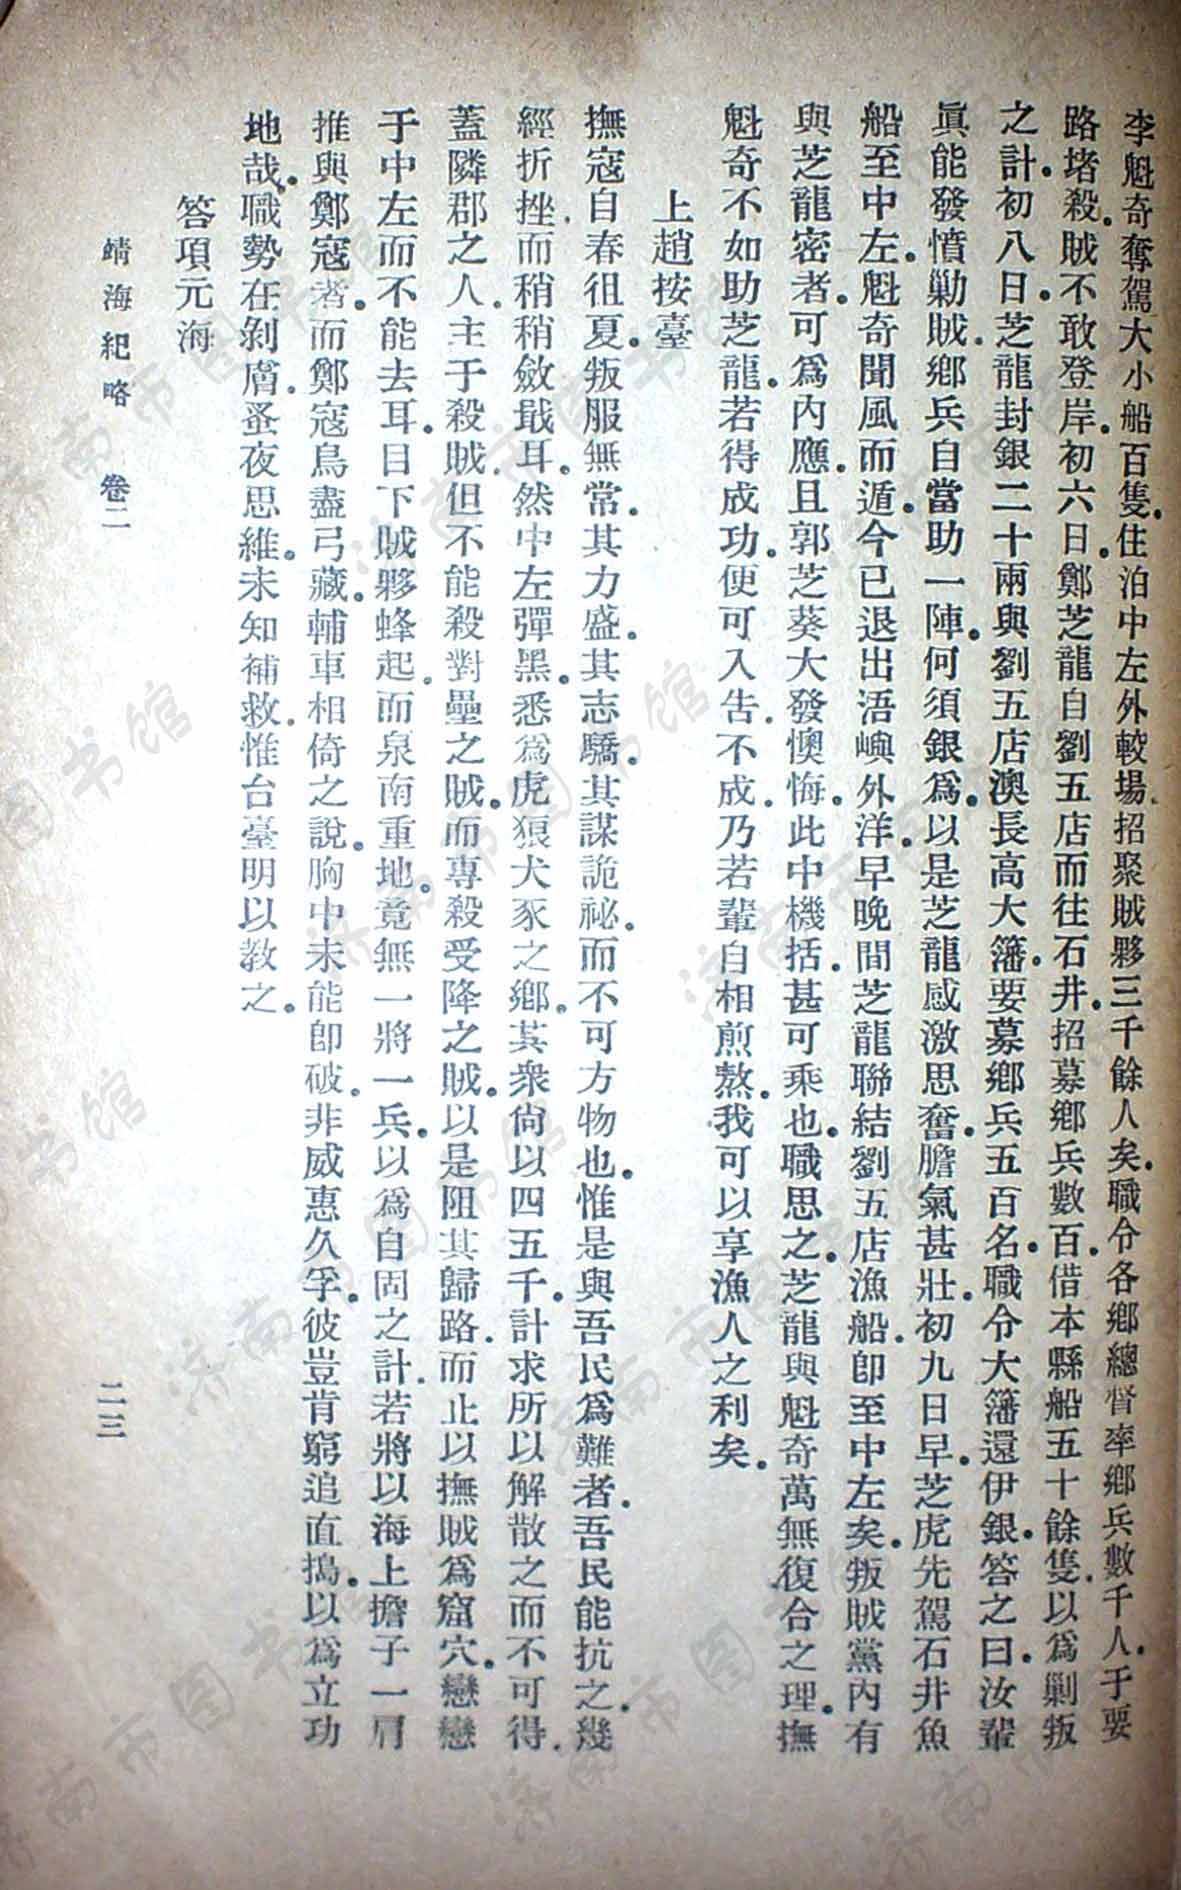 李魁奇奪駕大小船百隻。住泊中左外較場。招聚賊夥三千餘人矣。職令各鄉總督率鄉兵數千人。于要
路堵殺。賊不敢登岸。初六日。鄭芝龍自劉五店而往石井。招募鄉兵數百。借本縣船五十餘隻。以爲剿叛
之計。初八日。芝龍封銀二十兩與劉五店澳長高大藩。要募鄉兵五百名。職令大藩還伊銀。答之曰。汝輩
眞能發憤勦賊。鄉兵自當助一陣。何須銀爲。以是芝龍感激思奮。膽氣甚壯。初九日早。芝虎先駕石井魚
船至中左。魁奇聞風而遁。今已退出浯嶼外洋。早晚間芝龍聯結劉五店漁船。卽至中左矣。叛賊黨內有
與芝龍密者。可爲內應。且郭芝葵大發懊悔。此中機括。甚可乘也。職思之。芝龍與魁奇萬無復合之理。撫
魁奇不如助芝龍。芝龍若得成功。便可入告。不成。乃若輩自相煎熬。我可以享漁人之利矣。
上趙按臺
撫寇自春徂夏。叛服無常。其力盛。其志驕。其謀詭祕。而不可方物也。惟是與吾民爲難者。吾民能抗之。幾
經折挫。而稍稍斂戢耳。然中左彈黑。悉爲虎狼犬豕之鄉。其衆尙以四五千計。求所以解散之而不可得。
蓋隣郡之人。主于殺賊。但不能殺對壘之賊。而專殺受降之賊。以是阻其歸路。而止以撫賊爲窟穴。戀戀
于中左而不能去耳。目下賊夥蜂起。而泉南重地。竟無一將一兵。以爲自固之計。若將以海上擔子一肩
推與鄭寇者。而鄭寇鳥盡弓藏。輔車相倚之說。胸中未能卽破。非威惠久孚。彼豈肯窮追直搗。以爲立功
地哉。職勢在剝膚。蚤夜思維。未知補救。惟台臺明以教之。
答項元海
靖海紀略 卷二 二三